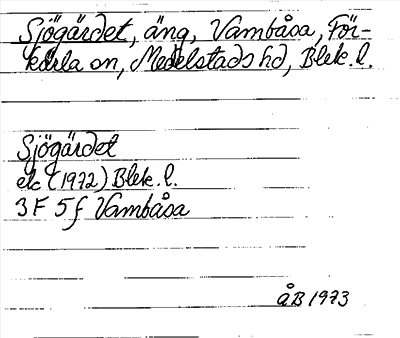 Sjögärdet, äng, Vambåsa, För-
kärla sn, Medelstads hd, Blek. l.
Sjögärdet
ek (1972) Blek. l.
3 F 5 f Vambåsa
ÅB 1973